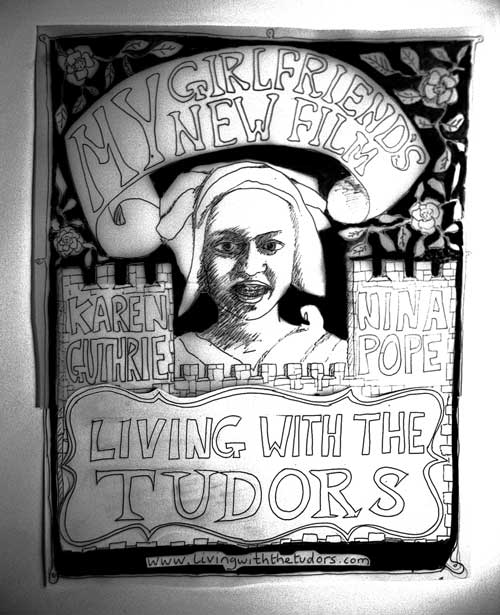 MY GIRLFRIEND'S
NEW FILM
KAREN
GUTHRIE
NINA
POPE
LIVING WITH THE
TUDORS
www.livingwiththetudors.com